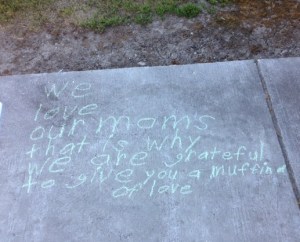 we
love
our mom's
that is why
we are grateful
to give you a muffind
of love